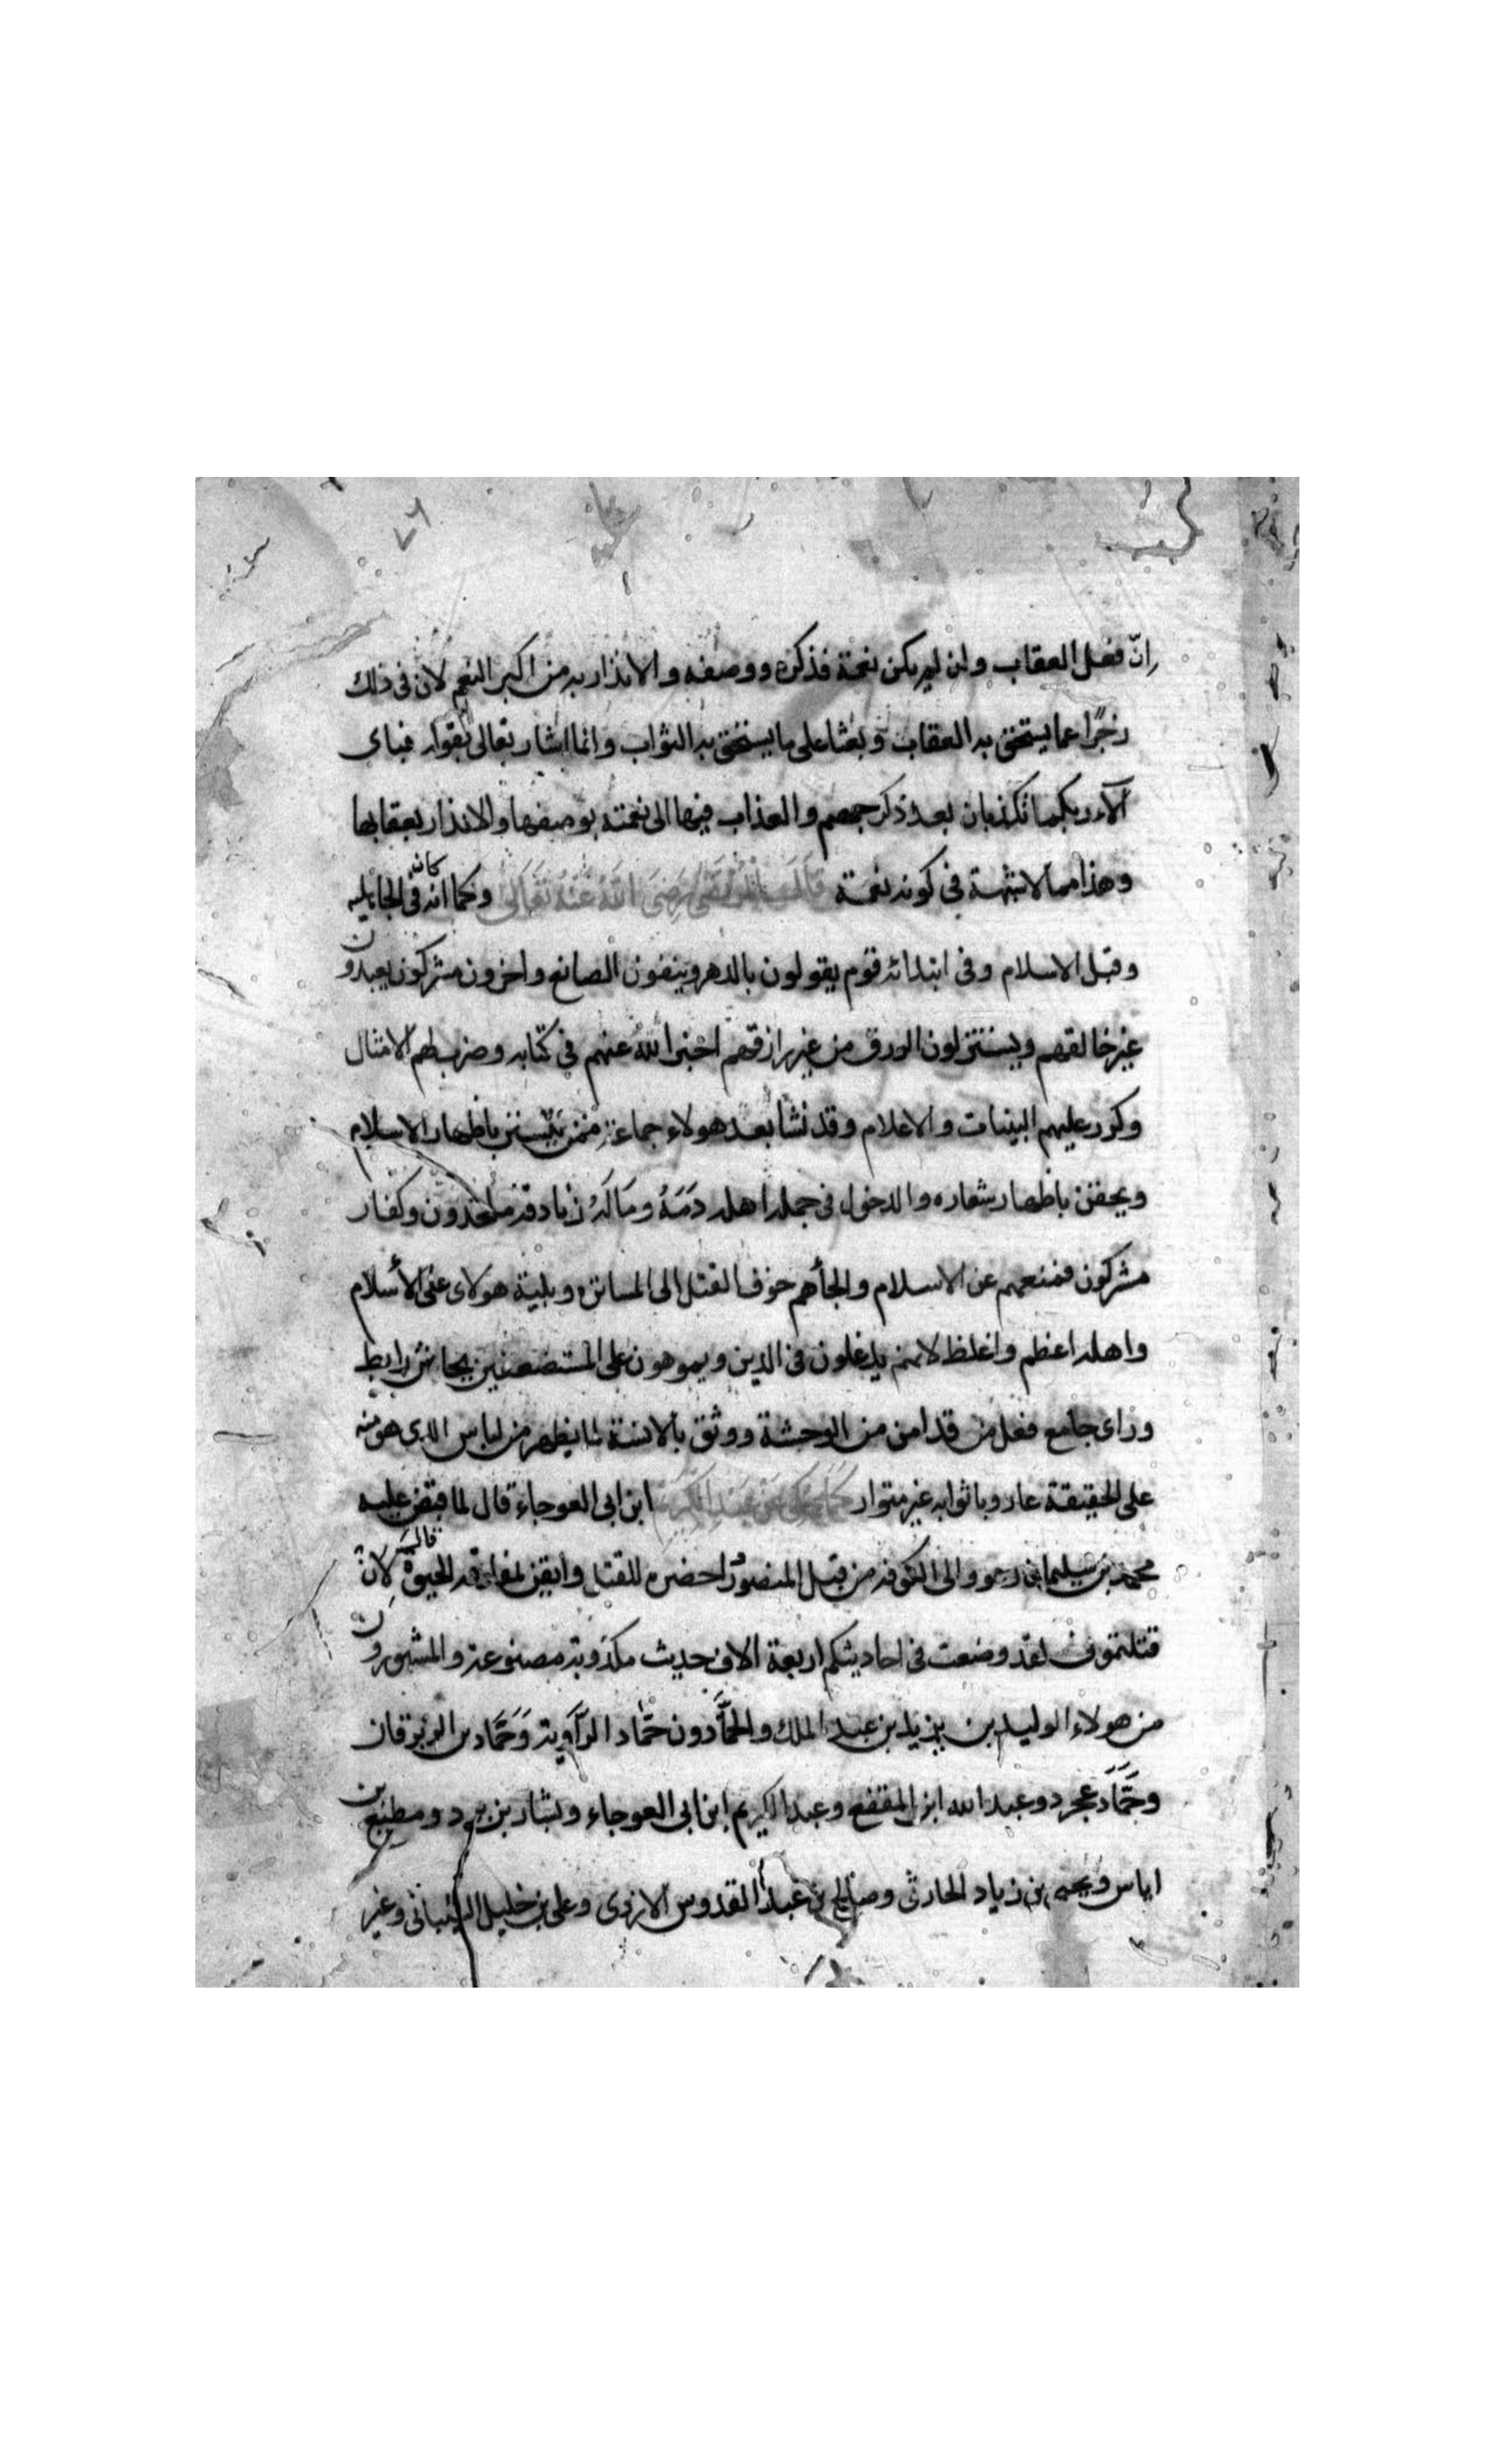 ٧٦
ان فعل العقاب وان لم يكن نعمة فذكره ووصفه والانذار به من اكبر النعم لان في ذلك
زجرا عما يستحق به العقاب وبعثا على ما يستحق به الثواب وانما اشار تعالى بقوله فباى
آلاء ربكما تكذبان بعد ذكر جهنم والعذاب فيها الى نعمته بوصفها والانذار بعقابها
وهذا مما لا شبهة في كونه نعمة قال المرتضى رضى الله عنه تعالى وكما انه كان في الجاهلية
وقبل الاسلام وفي ابتدائه قوم يقولون بالدهر وينفون الصانع واخرون مشركون يعبدون
غير خالقهم ويستنزلون الرزق من غير رازقهم اخبر الله عنهم في كتابه وضرب لهم الامثال
وكرر عليهم البينات والاعلام وقد نشا بعد هولاء جماعة ممن يتستر باظهار الاسلام
ويحقن باظهار شعاره والدخول في جملة اهله دمه وماله زنادقة ملحدون وكفار
مشركون فمنعهم عن الاسلام والجأهم خوف القتل الى المساترة وبلية هولاى على الأسلام
واهله اعظم واغلظ لانهم يدغلون في الدين ويموهون على المستضعفين بجاش رابط
وراى جامع فعل من قد امن من الوحشة ووثق بالانسة لما يظهر من لباس الدى هو منه
على الحقيقة عار وباثوابه غير متوار كما حكى عن عبد الكريم ابن ابى العوجاء قال لما قبض عليه
محمد بن سليمان وهو والى الكوفة من قبل المنصور احضره للقتل وايقن بمفارقة الحيوة قال لان
قتلتمونى لقد وضعت في احاديثكم اربعة الاف حديث مكذوبة مصنوعة والمشهورون
من هولاء الوليد بن يزيد بن عبد الملك والحمّادون حمّاد الرّاوية وحمّاد بن الزبرقان
وحمّاد عجرد وعبد الله ابن المقفع وعبد الكريم ابن ابى العوجاء وبشار بن برد ومطيع بن
اياس ويحيى بن زياد الحارثى وصالح بن عبد القدوس الازدى وعلى بن خليل الشيبانى وغير